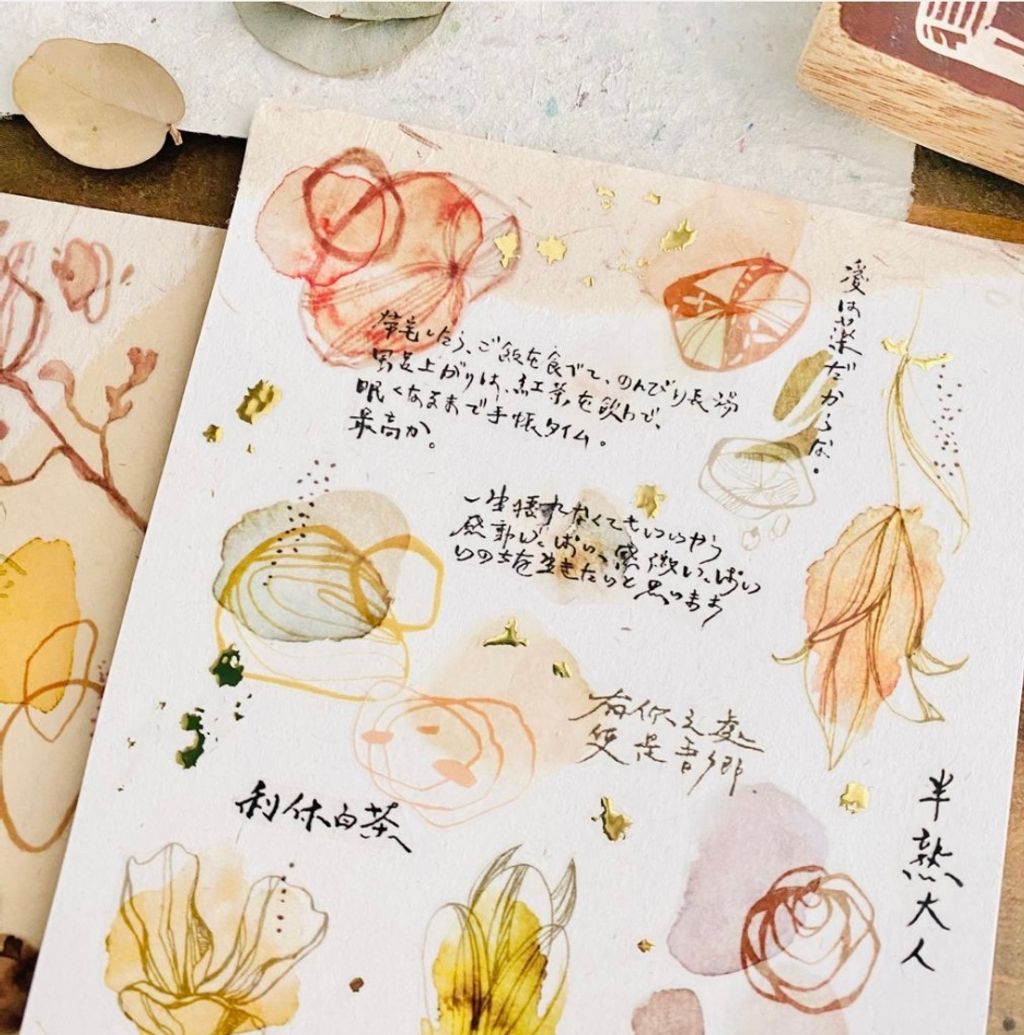 愛は薬だからな。
帯宅したら、ご飯を食べて、のんびり長湯
男呂上がりは、紅茶を飲んで、
眠くなるまで手帳タイム。
最高か。
一生揺れなくてもいいから
感動いっぱい、感激いっぱい
いのちを生きたいと思います
有你之處
便是吾鄉
利休白茶
半熟大人